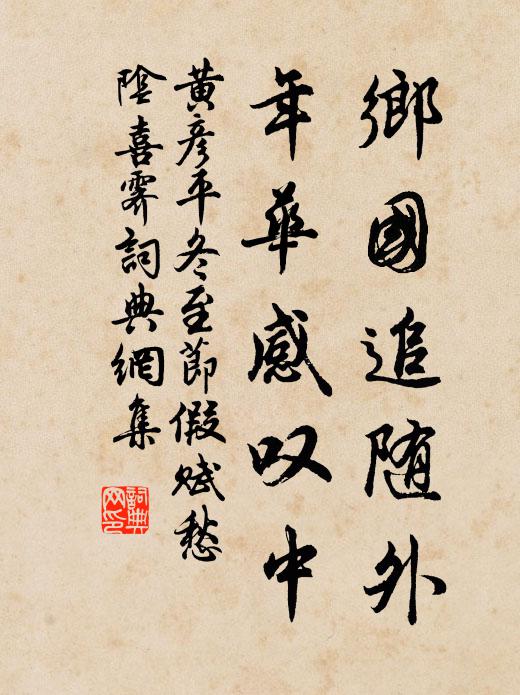 鄉國追随外
年華感叹中
黃彦平冬至節假賦愁
陰喜霽詞典網集
詞典网印